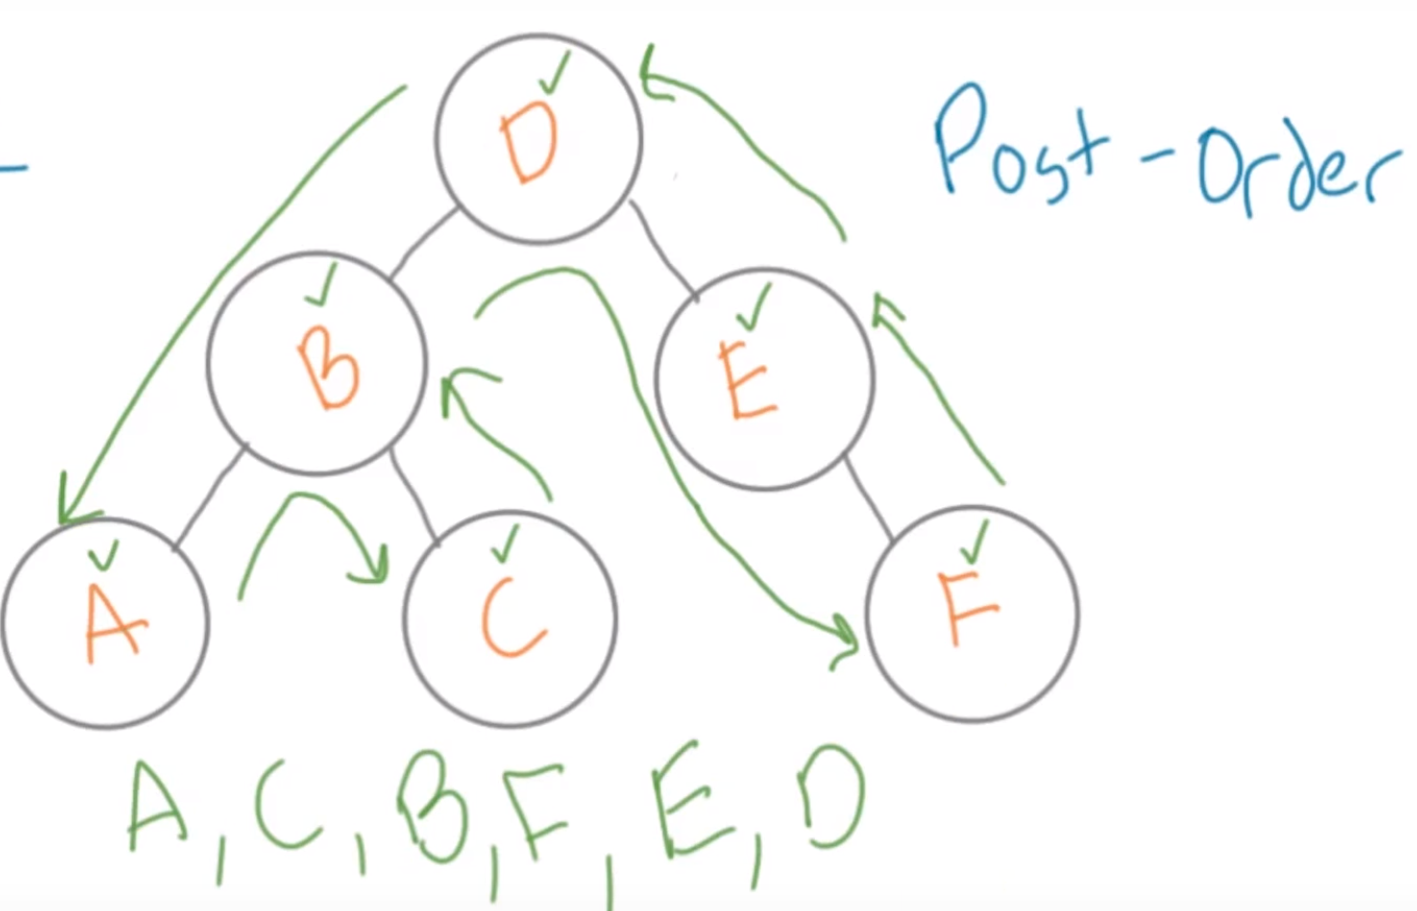 D
Post-Order
B
E
A
C
F
A, C, B, F, E, D